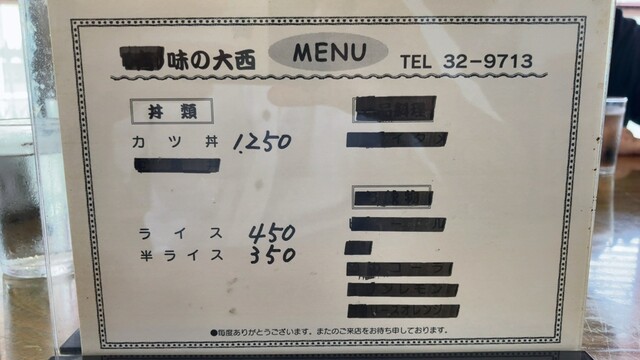 味の大西 MENU TEL 32-9713
丼類
カツ丼 1,250
ライス 450
半ライス 350
品料理
コーラ
レモン
ースオレンジ
●毎度ありがとうございます。またのご来店をお待ち申しております。